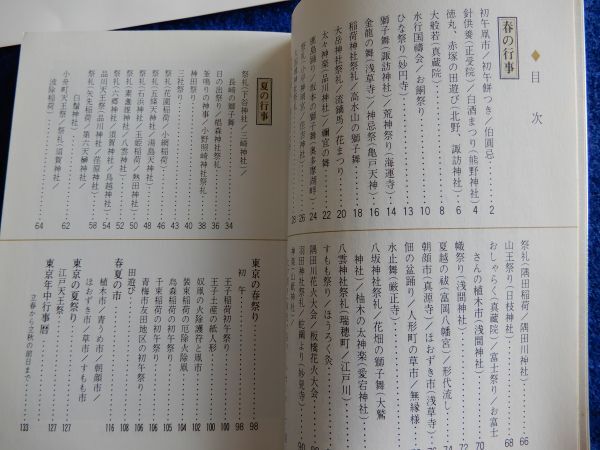 ◆目次
春の行事
初午凧市／初午餅つき／伯圓忌 2
針供養（正受院）／白酒まつり（熊野神社） 4
徳丸、赤塚の田遊び（北野、諏訪神社） 6
大般若（真蔵院） 8
水行国禱会／お餇祭り 10
ひな祭り（妙円寺） 13
獅子舞（諏訪神社）／荒神祭り（海運寺） 14
金龍の舞（浅草寺）／神忌祭（亀戸天神） 16
稲荷神社祭礼／高水山の獅子舞 18
大岳神社祭礼／流鏑馬／花まつり 20
太々神楽（品川神社）／彌宮の舞 22
鹿島踊り／坂本の獅子舞（奥多摩湖畔） 24
26
28
夏の行事
長崎の獅子舞 34
日の出祭り／榋森神社祭礼 36
釜鳴りの神事／小野照崎神社祭礼 38
神田祭り 40
三社祭り 43
祭礼（花園稲荷／小網稲荷） 45
祭礼（五條天神社／湯島天神社） 46
祭礼（石浜神社／玉姫稲荷／熱田神社） 48
祭礼（素盞雄神社／八雲神社） 50
祭礼（六郷神社／須賀神社／鳥越神社） 52
品川天王祭（品川神社／荏原神社） 54
祭礼（矢先稲荷／第六天榊神社／
白鬚神社） 58
小舟町天王祭／祭礼（須賀神社／
波除稲荷） 62
祭礼（下谷神社／三崎神社／
64
祭礼（隅田稲荷／隅田川神社） 66
山王祭り（日枝神社） 68
おしゃらく（真蔵院）／富士祭り／お富士
さんの植木市（浅間神社） 70
幟祭り（浅間神社） 72
夏越の祓（富岡八幡宮）／形代流し 74
朝顔市（真源寺）／ほおずき市（浅草寺）
佃の盆踊り／人形町の草市／無縁様
水止舞（厳正寺）
八坂神社祭礼／花畑の獅子舞（大鷲
神社）／柚木の太神楽（愛宕神社）
八雲神社祭礼（瑞穂町／江戸川）
すもも祭り／ほうろく灸
隅田川花火大会／板橋花火大会
羽田神社祭礼
東京の春祭り 98
初午 98
王子稲荷の初午祭り 100
王子土産の紙人形 100
奴凧の火除護符と凧市 101
装束稲荷の厄除火除凧 102
烏森稲荷の初午祭り 104
千束稲荷の初午祭り 105
青梅市友田地区の初午祭り 106
田遊び 106
春夏の市 108
植木市／青うめ市／朝顔市／
ほおずき市／草市／すもも市 116
東京の夏祭り
江戸天王祭 127
東京年中行事暦
立春から立秋の前日まで 133